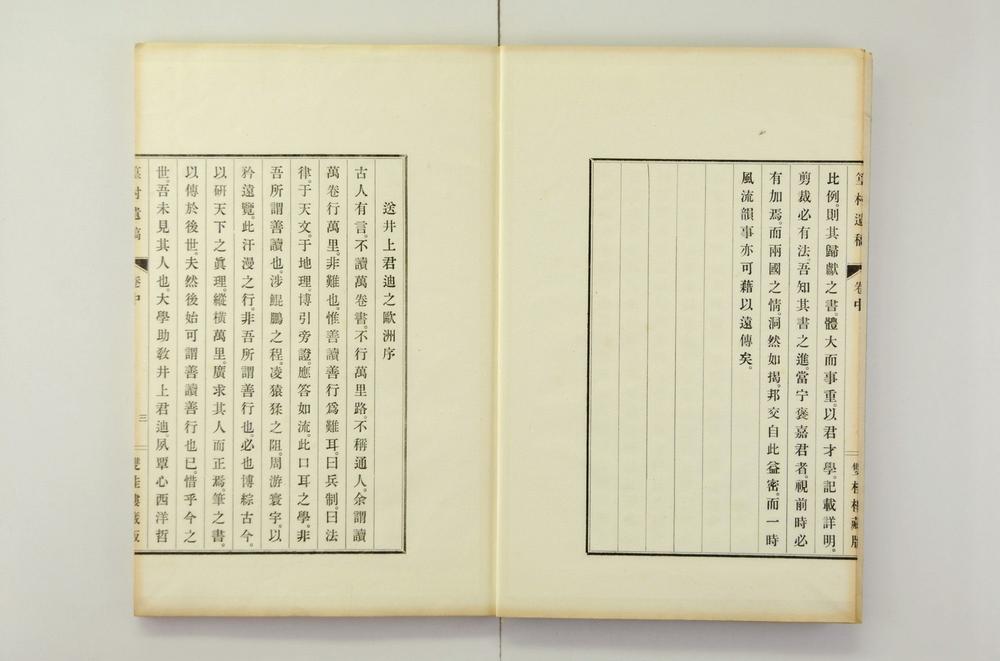 遺稿 卷中
比例。則其歸獻之書。體大而事重。以君才學。記載詳明。
剪裁必有法。吾知其書之進。當宁褒嘉君者。視前時必
有加焉。而兩國之情。洞然如揭。邦交自此益密。而一時
風流韻事亦可藉以遠傳矣。
送井上君迪之歐洲序
古人有言。不讀萬卷書。不行萬里路。不稱通人。余謂讀
萬卷行萬里。非難也。惟善讀善行爲難耳。曰兵制。曰法
律。于天文。于地理。博引旁證。應答如流。此口耳之學。非
吾所謂善讀也。涉鯤鵬之程。凌猿猱之阻。周游寰宇。以
矜遠覽。此汗漫之行。非吾所謂善行也。必也博綜古今。
以研天下之眞理。縱橫萬里。廣求其人而正焉。筆之書。
以傳於後世。夫然後始可謂善讀善行也已。惜乎今之
世。吾未見其人也。大學助敎井上君迪。夙覃心西洋哲
遺稿 卷中 三